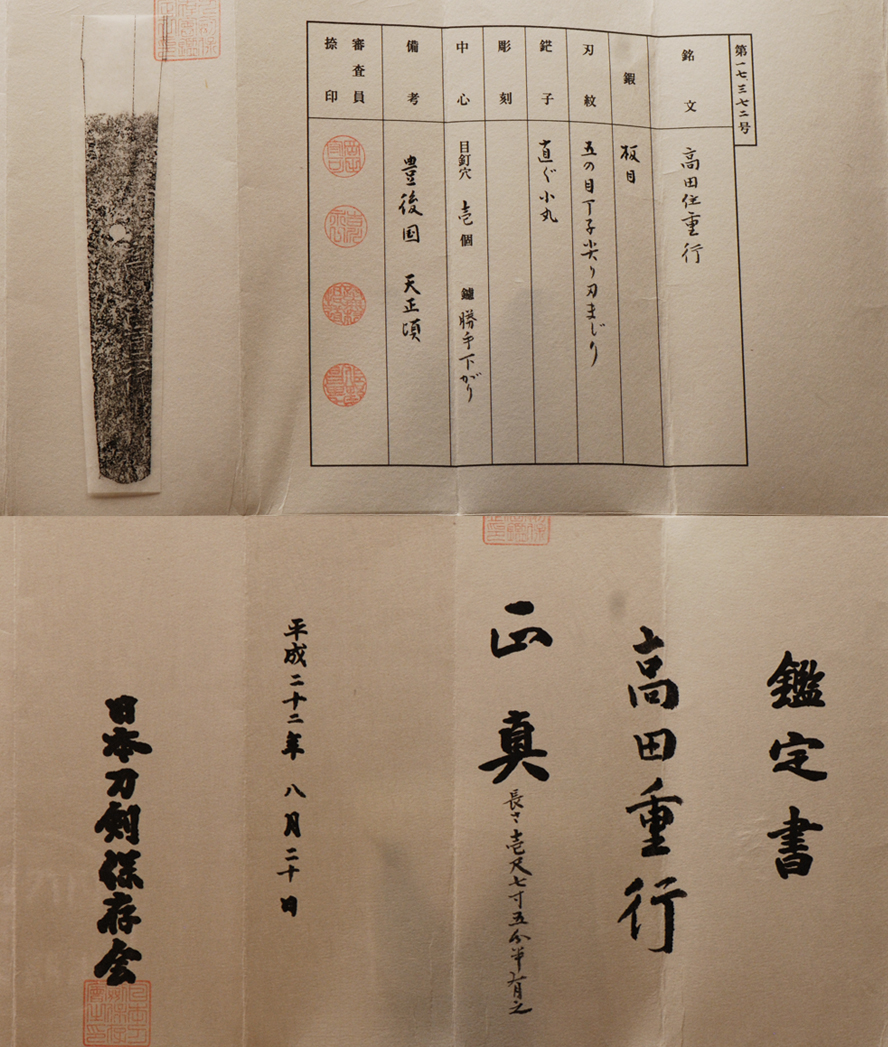 第一七、三七二号
銘文 高田住重行
鍜 板目
刃紋 五の目丁子尖り刃まじり
鋩子 直ぐ小丸
彫刻
中心 目釘穴 壱個 鑢 勝手下がり
備考 豊後国 天正頃
審査員
捺印
鑑定書
高田重行
正真
長さ壱尺七寸五分半有之
平成二十二年八月二十日
日本刀剣保存会